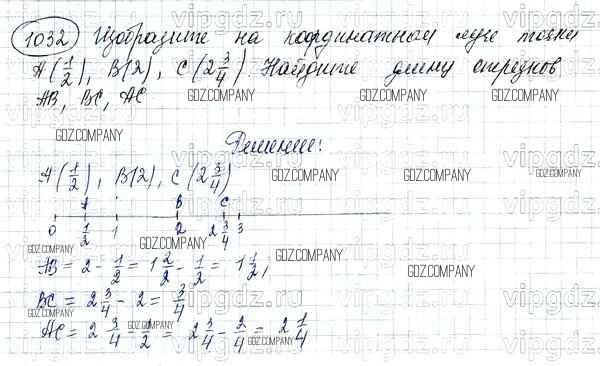 1032 Изобразите на координатном луче точки
A(1/2), B(2), C(2 3/4). Найдите длину отрезков
AB, BC, AC
Решение:
A(1/2), B(2), C(2 3/4)
A B C
0 1/2 1 2 2 3/4 3
AB = 2 - 1/2 = 1 2/2 - 1/2 = 1 1/2,
BC = 2 3/4 - 2 = 3/4
AC = 2 3/4 - 1/2 = 2 3/4 - 2/4 = 2 1/4
GDZ.COMPANY
vipgdz.ru